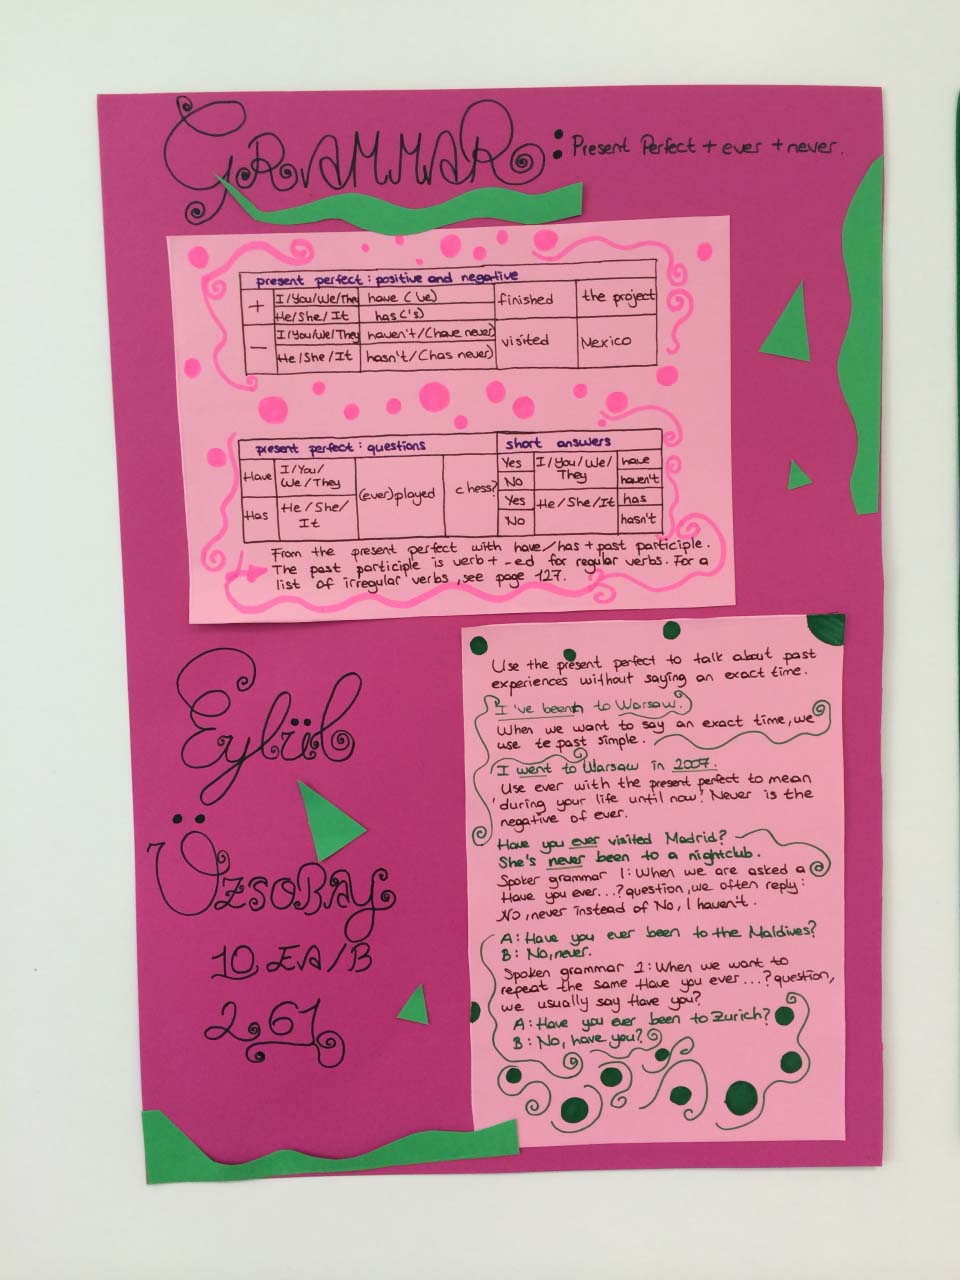 GRAMMAR : Present Perfect + ever + never.
present perfect : positive and negative
+ I/You/We/They have ('ve) finished the project
He/She/It has ('s)
– I/You/We/They haven't/(have never) visited Mexico
He/She/It hasn't/(has never)
present perfect : questions short answers
Have I/You/We/They (ever) played chess? Yes I/You/We/They have
No haven't
Has He/She/It Yes He/She/It has
No hasn't
From the present perfect with have/has + past participle.
The past participle is verb + -ed for regular verbs. For a
list of irregular verbs, see page 127.
Use the present perfect to talk about past
experiences without saying an exact time.
I've been to Warsaw.
When we want to say an exact time, we
use te past simple.
I went to Warsaw in 2007.
Use ever with the present perfect to mean
'during your life until now'. Never is the
negative of ever.
Have you ever visited Madrid?
She's never been to a nightclub.
Spoker grammar 1: When we are asked a
Have you ever...? question, we often reply:
No, never instead of No, I haven't.
A: Have you ever been to the Maldives?
B: No, never.
Spoken grammar 1: When we want to
repeat the same Have you ever...? question,
we usually say Have you?
A: Have you ever been to Zurich?
B: No, have you?
Eylül
ÜZSOBAY
10 EA/B
2.61